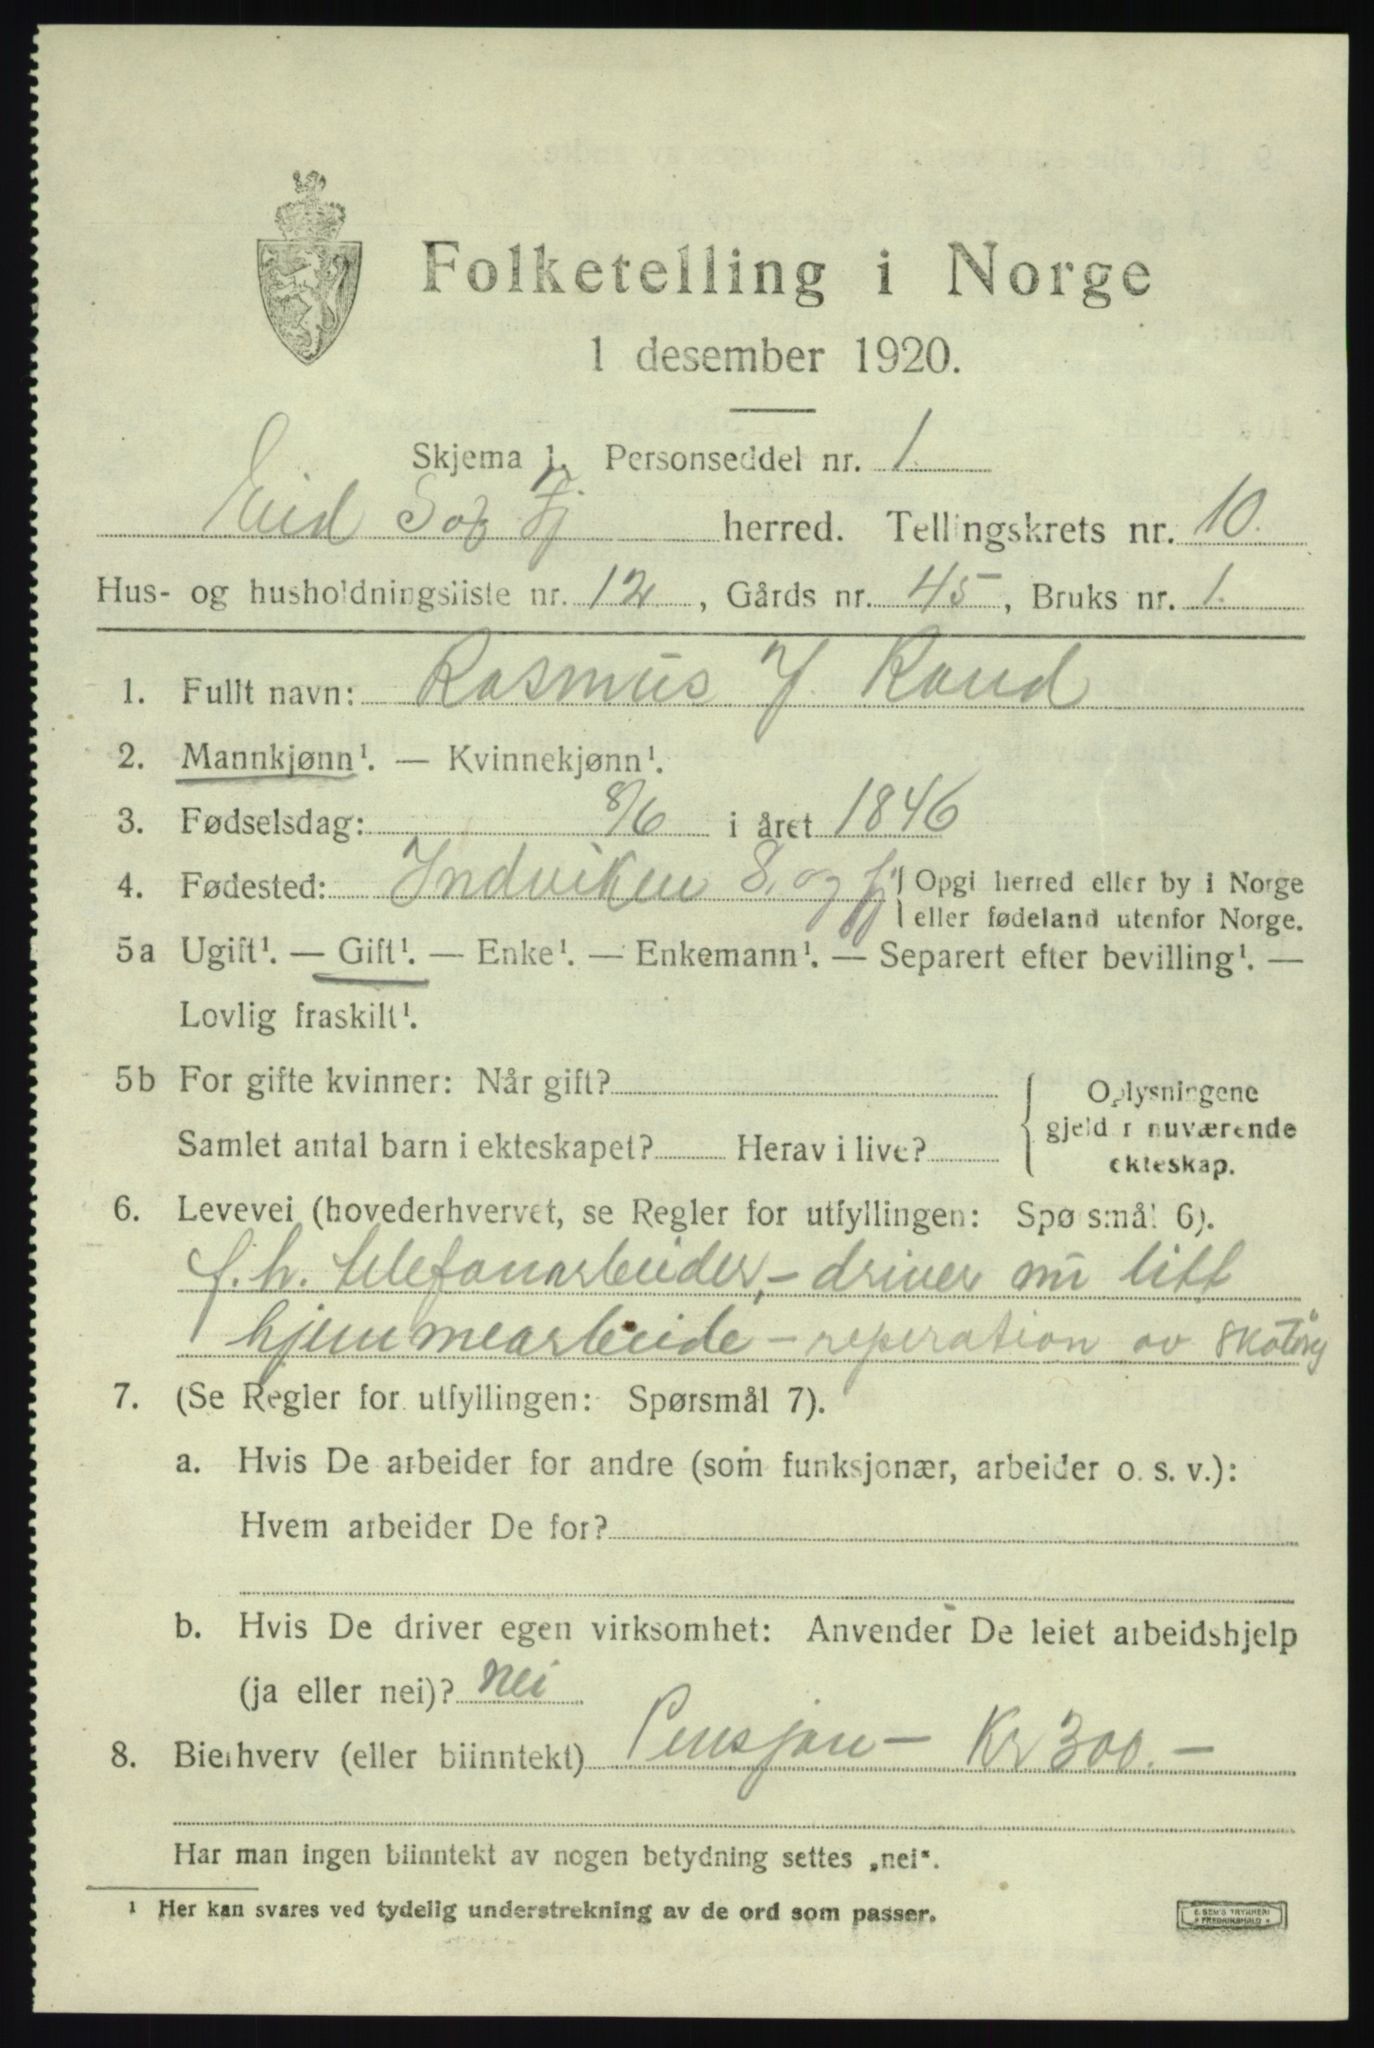 Folketelling i Norge
1 desember 1920.
Skjema 1. Personseddel nr. 1.
Eid S og Fj herred. Tellingskrets nr. 10.
Hus- og husholdningsliste nr. 12, Gårds nr. 45, Bruks nr. 1.
1. Fullt navn: Rasmus J. Rand
2. Mannkjønn¹. — Kvinnekjønn¹.
3. Fødselsdag: 8/6 i året 1846
4. Fødested: Indviken S. og fj { Opgi herred eller by i Norge
eller fødeland utenfor Norge.
5a Ugift¹. — Gift¹. — Enke¹. — Enkemann¹. — Separert efter bevilling¹. —
Lovlig fraskilt¹.
5b For gifte kvinner: Når gift?
Oplysningene
gjelder nuværende
ekteskap.
Samlet antal barn i ekteskapet? Herav i live?
6. Levevei (hovederhvervet, se Regler for utfyllingen: Spørsmål 6).
f.h. telefonarbeider, – driver nu litt
hjemmearbeide – reperation av skotøy
7. (Se Regler for utfyllingen: Spørsmål 7).
a. Hvis De arbeider for andre (som funksjonær, arbeider o. s. v.):
Hvem arbeider De for?
b. Hvis De driver egen virksomhet: Anvender De leiet arbeidshjelp
(ja eller nei)? nei
8. Bierhverv (eller biinntekt) Pensjon – Kr 300. –
Har man ingen biinntekt av nogen betydning settes „nei“.
¹ Her kan svares ved tydelig understrekning av de ord som passer.
E. SEM'S TRYKKERI
* FREDRIKSHALD *